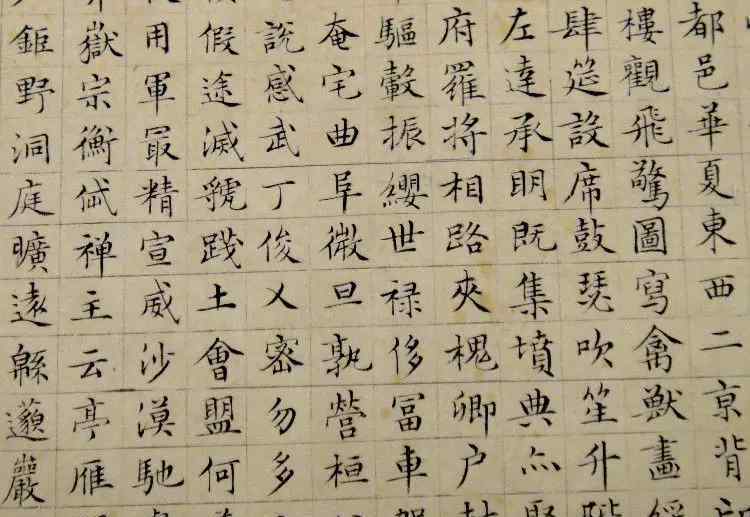 都邑華夏東西二亰背
樓觀飛驚圖寫禽獸畫
肆筵設席鼓瑟吹笙升階
左達承眀既集墳典亦聚
府羅將相路夾槐卿户
驅轂振纓世禄侈冨車
奄宅曲阜微旦孰營桓
說感武丁俊乂密勿多
假途滅虢踐土會盟何
用軍最精宣威沙漠馳
嶽宗衡岱禪主云亭雁
鉅野洞庭曠遠緜邈巖